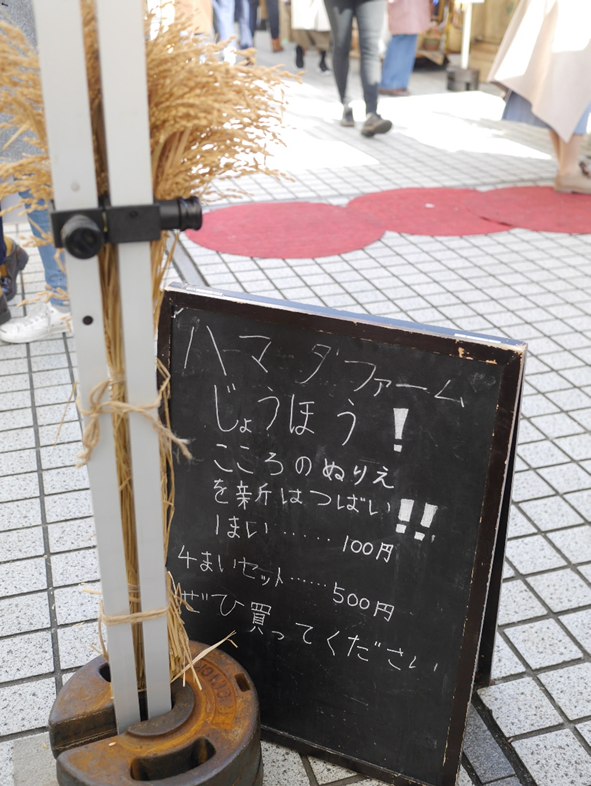 ハーマダファーム
じょうほう!
こころのぬりえ
を新所はつばい!!
1まい……100円
4まいセット……500円
ぜひ買ってください